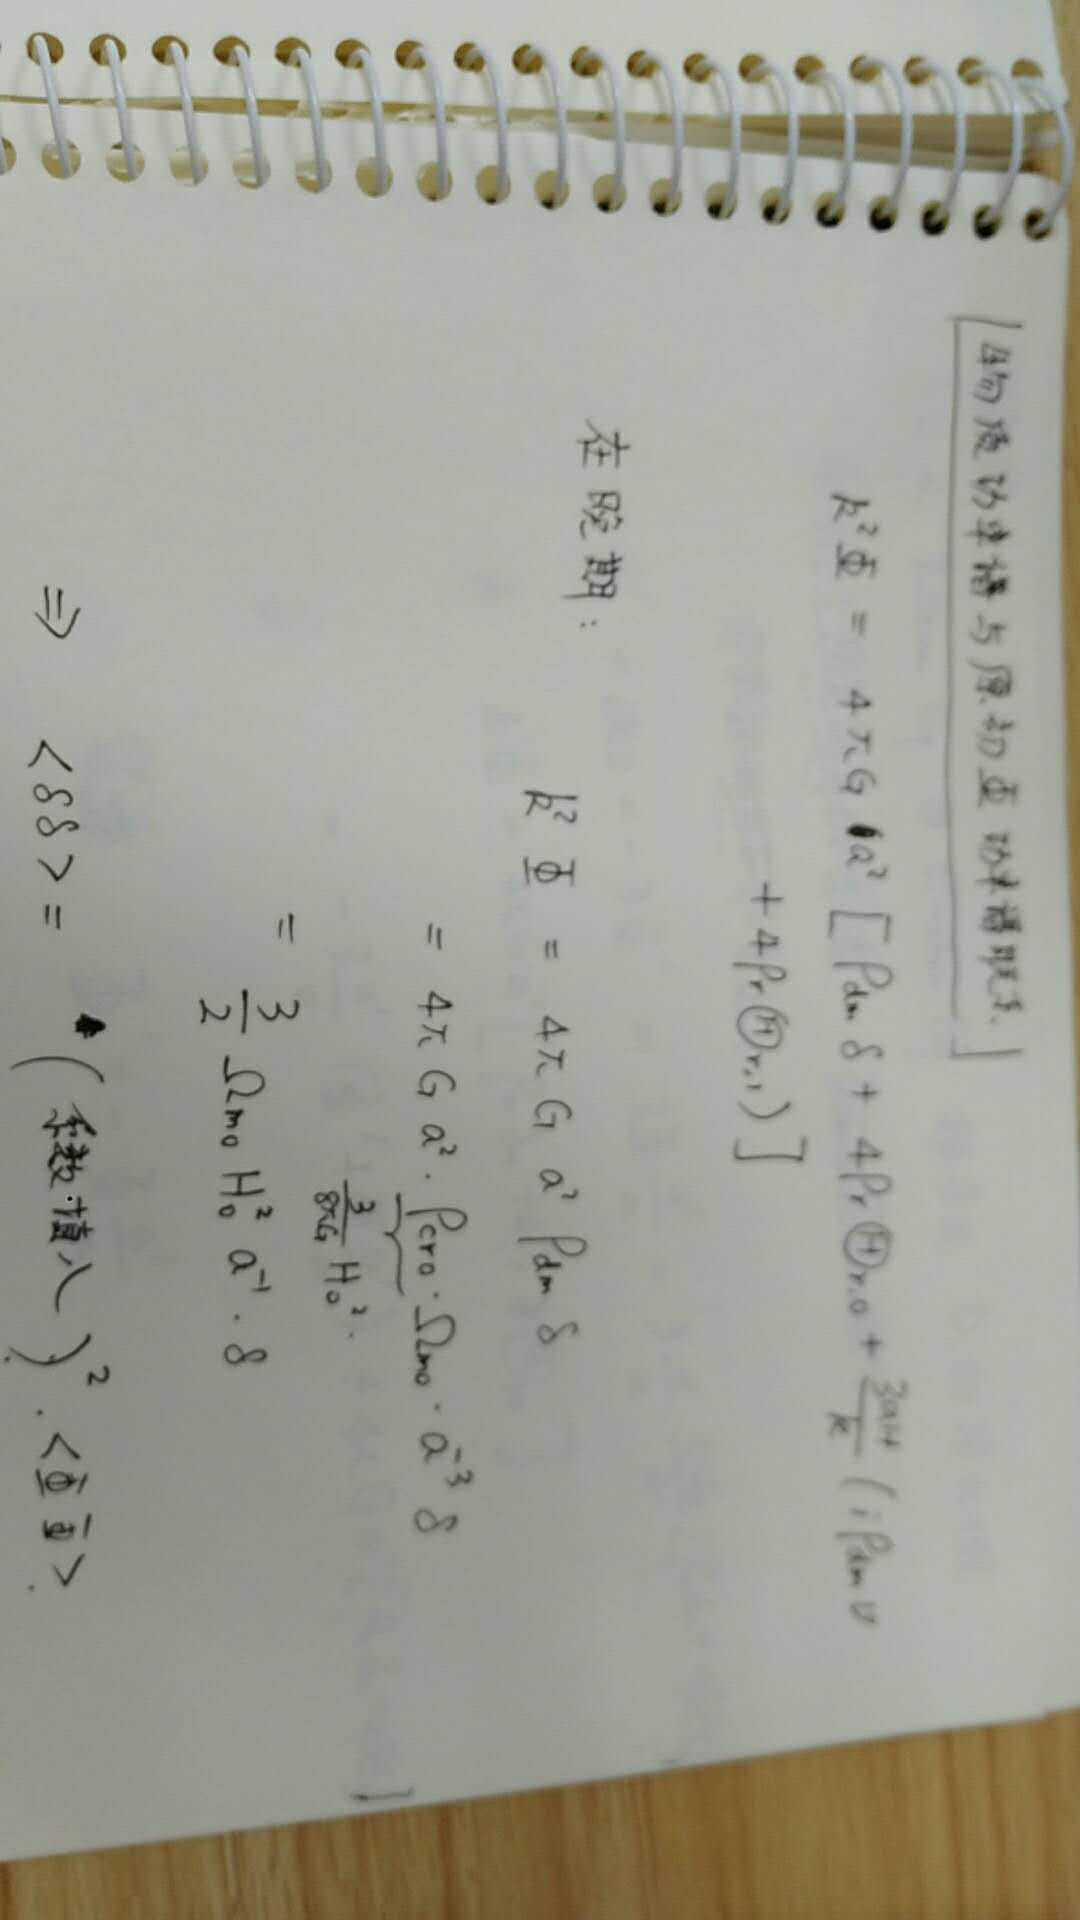 [物质功率谱与原初Φ功率谱联系.]
k²Φ = 4πG a² [ρdm δ + 4ρr Θr,0 + 3aH/k (iρdm v
+ 4ρr Θr,1)]
在晚期:
k²Φ = 4πG a² ρdm δ
= 4πG a² · ρcr0 · Ωm0 · a⁻³ δ
3/8πG H0².
= 3/2 Ωm0 H0² a⁻¹ · δ
⇒ <δδ> = (系数·植入)² · <ΦΦ>.